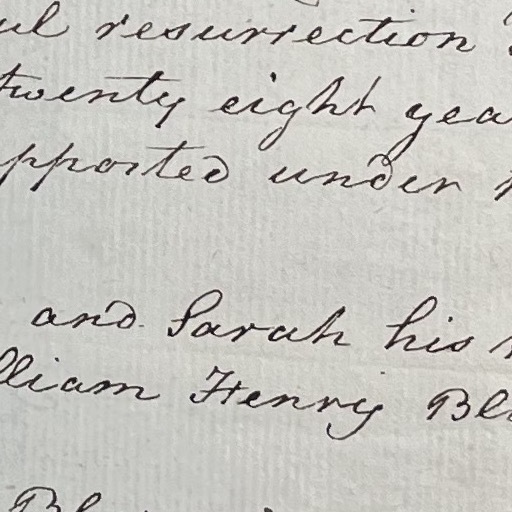 ul resurrection
twenty eight yea
pported under
and Sarah his
lliam Henry Bl
Bl